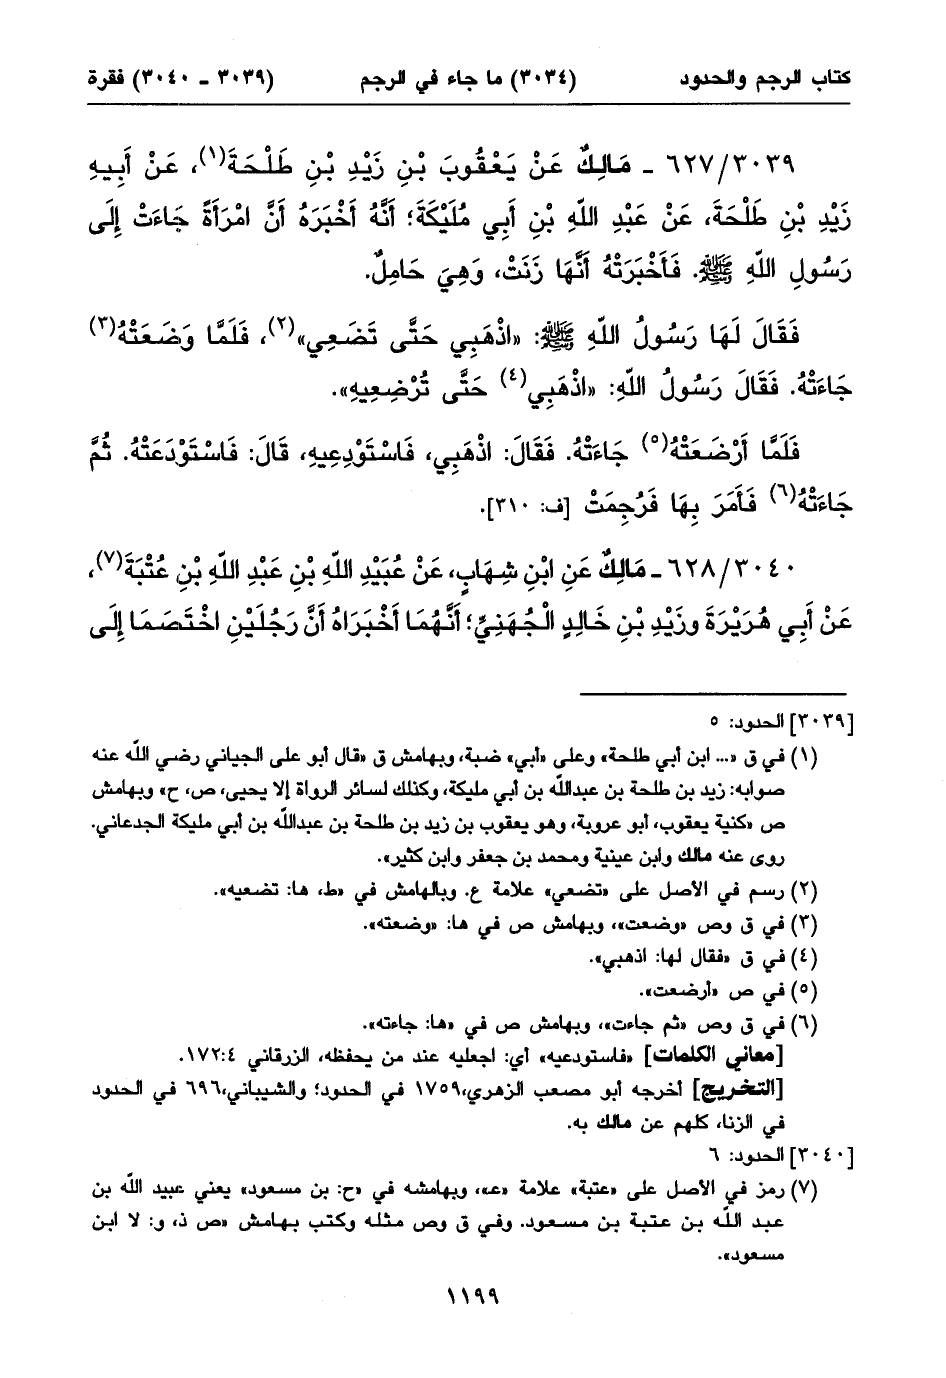 كتاب الرجم والحدود (٣٠٣٤) ما جاء في الرجم (٣٠٣٩ ـ ٣٠٤٠) فقرة
٦٢٧/٣٠٣٩ ـ مَالِكٌ عَنْ يَعْقُوبَ بْنِ زَيْدِ بْنِ طَلْحَةَ(١)، عَنْ أَبِيهِ
زَيْدِ بْنِ طَلْحَةَ، عَنْ عَبْدِ اللَّهِ بْنِ أَبِي مُلَيْكَةَ؛ أَنَّهُ أَخْبَرَهُ أَنَّ امْرَأَةً جَاءَتْ إِلَى
رَسُولِ اللَّهِ ﷺ. فَأَخْبَرَتْهُ أَنَّهَا زَنَتْ، وَهِيَ حَامِلٌ.
فَقَالَ لَهَا رَسُولُ اللَّهِ ﷺ: «اذْهَبِي حَتَّى تَضَعِي»(٢)، فَلَمَّا وَضَعَتْهُ(٣)
جَاءَتْهُ. فَقَالَ رَسُولُ اللَّهِ: «اذْهَبِي(٤) حَتَّى تُرْضِعِيهِ».
فَلَمَّا أَرْضَعَتْهُ(٥) جَاءَتْهُ. فَقَالَ: اذْهَبِي، فَاسْتَوْدِعِيهِ، قَالَ: فَاسْتَوْدَعَتْهُ. ثُمَّ
جَاءَتْهُ(٦) فَأَمَرَ بِهَا فَرُجِمَتْ [ف: ٣١٠].
٦٢٨/٣٠٤٠ ـ مَالِكٌ عَنِ ابْنِ شِهَابٍ، عَنْ عُبَيْدِ اللَّهِ بْنِ عَبْدِ اللَّهِ بْنِ عُتْبَةَ(٧)،
عَنْ أَبِي هُرَيْرَةَ وزَيْدِ بْنِ خَالِدٍ الْجُهَنِيِّ؛ أَنَّهُمَا أَخْبَرَاهُ أَنَّ رَجُلَيْنِ اخْتَصَمَا إِلَى
[٣٠٣٩] الحدود: ٥
(١) في ق «... ابن أبي طلحة» وعلى «أبي» ضبة، وبهامش ق «قال أبو على الجياني رضي الله عنه
صوابه: زيد بن طلحة بن عبدالله بن أبي مليكة، وكذلك لسائر الرواة إلا يحيى، ص، ح» وبهامش
ص «كنية يعقوب، أبو عروبة، وهو يعقوب بن زيد بن طلحة بن عبدالله بن أبي مليكة الجدعاني.
روى عنه مالك وابن عيينة ومحمد بن جعفر وابن كثير».
(٢) رسم في الأصل على «تضعي» علامة ع. وبالهامش في «ط، ها: تضعيه».
(٣) في ق وص «وضعت»، وبهامش ص في ها: «وضعته».
(٤) في ق «فقال لها: اذهبي».
(٥) في ص «أرضعت».
(٦) في ق وص «ثم جاءت»، وبهامش ص في «ها: جاءته».
[معاني الكلمات] «فاستودعيه» أي: اجعليه عند من يحفظه، الزرقاني ١٧٢:٤.
[التخريج] أخرجه أبو مصعب الزهري،١٧٥٩ في الحدود؛ والشيباني،٦٩٦ في الحدود
في الزنا، كلهم عن مالك به.
[٣٠٤٠] الحدود: ٦
(٧) رمز في الأصل على «عتبة» علامة «عـ»، وبهامشه في «ح: بن مسعود» يعني عبيد الله بن
عبد الله بن عتبة بن مسعود. وفي ق وص مثله وكتب بهامش «ص ذ، و: لا ابن
مسعود».
١١٩٩